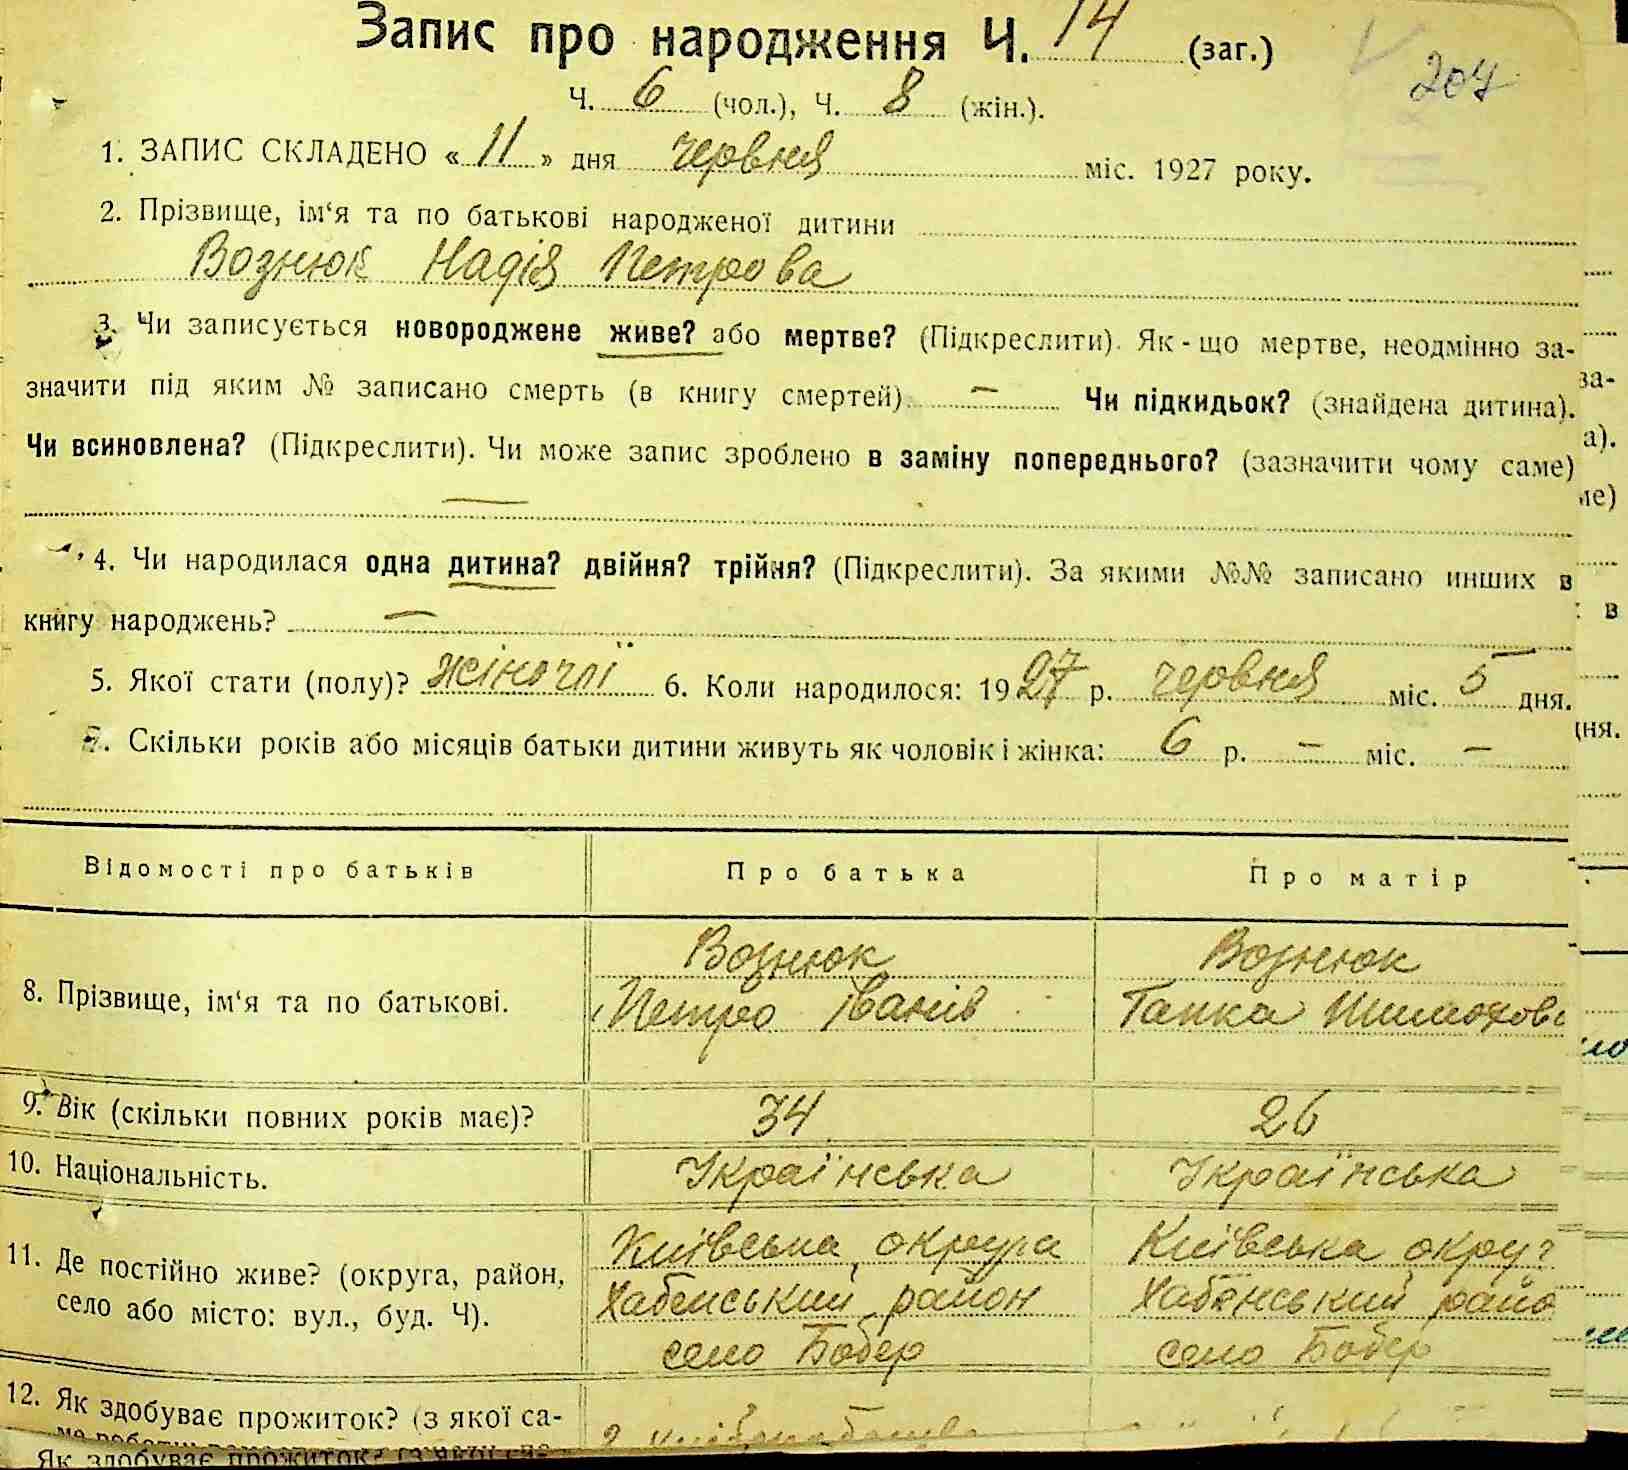 Запис про народження Ч. 14 (заг.)
207
Ч. 6 (чол.), Ч. 8 (жін.).
1. ЗАПИС СКЛАДЕНО « 11 » дня червня міс. 1927 року.
2. Прізвище, ім‘я та по батькові народженої дитини
Вознюк Надія Петрова
3. Чи записується новороджене живе? або мертве? (Підкреслити). Як-що мертве, неодмінно за-
значити під яким № записано смерть (в книгу смертей) — Чи підкидьок? (знайдена дитина).
Чи всиновлена? (Підкреслити). Чи може запис зроблено в заміну попереднього? (зазначити чому саме)
—
4. Чи народилася одна дитина? двійня? трійня? (Підкреслити). За якими №№ записано инших в
книгу народжень? —
5. Якої стати (полу)? жіночої 6. Коли народилося: 1927 р. червня міс. 5 дня.
7. Скільки років або місяців батьки дитини живуть як чоловік і жінка: 6 р. — міс. —
Відомості про батьків Про батька Про матір
8. Прізвище, ім‘я та по батькові.
Вознюк
Петро Іванів
Вознюк
Ганка
9. Вік (скільки повних років має)? 34 26
10. Національність. Українська Українська
11. Де постійно живе? (округа, район,
село або місто: вул., буд. Ч).
Київська округа
Хабенський район
село Бобер
Київська округ
Хабенський райо
село Бобер
12. Як здобуває прожиток? (з якої са-
Як здобуває прожиток?